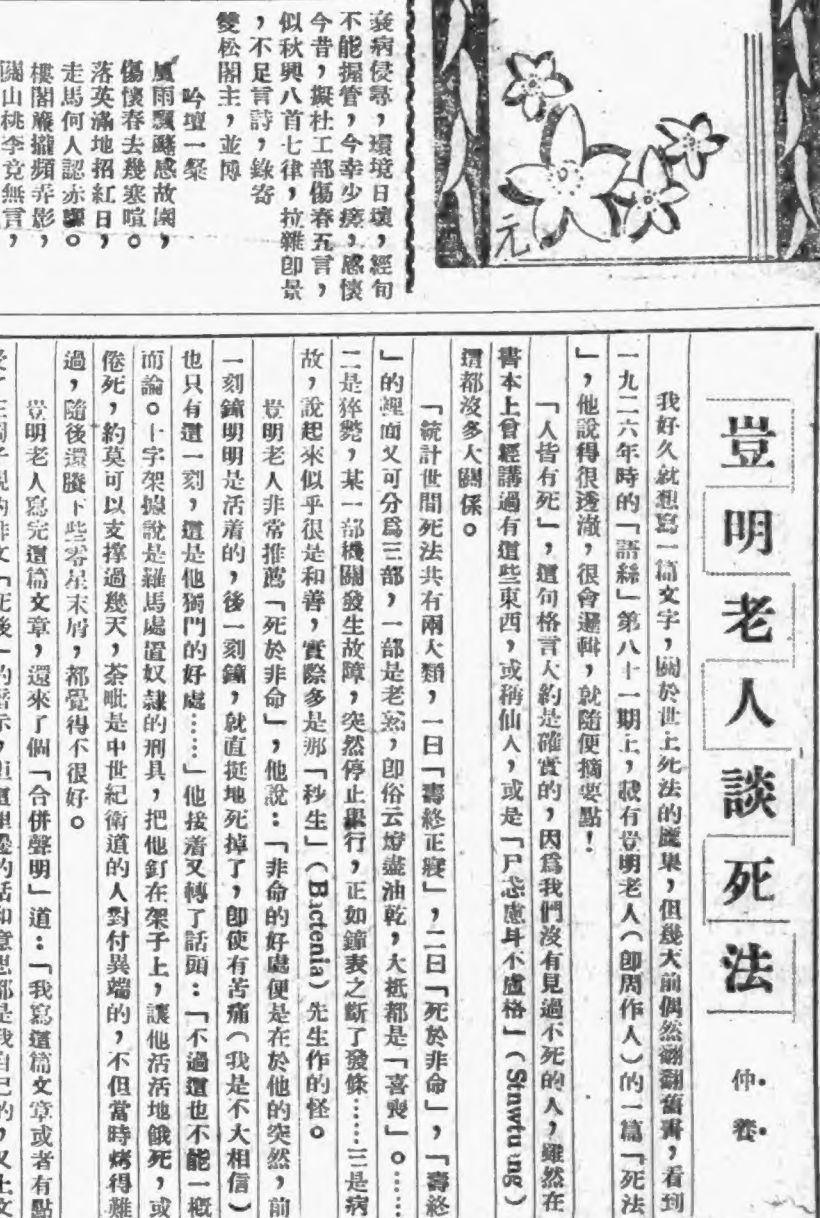 元
衰病侵尋,環境日壞,經旬
不能握管,今幸少瘥,感懷
今昔,擬杜工部傷春五言,
似秋興八首七律,拉雜卽景
,不足言詩,錄寄
雙松閣主,並博
吟壇一粲
風雨飄颻感故園,
傷懷春去幾寒喧。
落英滿地招紅日,
走馬何人認赤。
樓閣簾攏頻弄影,
關山桃李竞無言,
豈明老人談死法
仲養
我好久就想寫一篇文字,關於世上死法的,但幾天前偶然翻翻舊書,看到
一九二六年時的「語絲」第八十一期上,載有豈明老人(卽周作人)的一篇「死法
」,他說得很透澈,很會邏輯,就隨便摘要點!
「人皆有死」,這句格言大約是確實的,因爲我們沒有見過不死的人,雖然在
書本上曾經講過有這些東西,或稱仙人,或是「尸忒盧耳不盧格」(Sinwtu ng)
這都沒多大關係。
「統計世間死法共有兩大類,一曰「壽終正寢」,二曰「死於非命」,「壽終
」的裡面又可分爲三部,一部是老熟,卽俗云燈盡油乾,大抵都是「喜喪」。……
二是猝斃,某一部機關發生故障,突然停止舉行,正如鐘表之斷了發條……三是病
故,說起來似乎很是和善,實際多是那「秒生」(Bactenia)先生作的怪。
豈明老人非常推薦「死於非命」,他說:「非命的好處便是在於他的突然,前
一刻鐘明明是活着的,後一刻鐘,就直挺地死掉了,卽使有苦痛(我是不大相信)
也只有這一刻,這是他獨門的好處……」他接着又轉了話頭:「不過這也不能一概
而論。十字架據說是羅馬處置奴隸的刑具,把他釘在架子上,讓他活活地餓死,或
倦死,約莫可以支撐過幾天,荼毗是中世紀衛道的人對付異端的,不但當時烤得難
過,隨後還賸下些零星末屑,都覺得不很好。
豈明老人寫完這篇文章,還來了個「合併聲明」道:「我寫這篇文章或者有點
的俳文「死後」的暗示,但這裡邊的話和意思都是我自己的,又上文